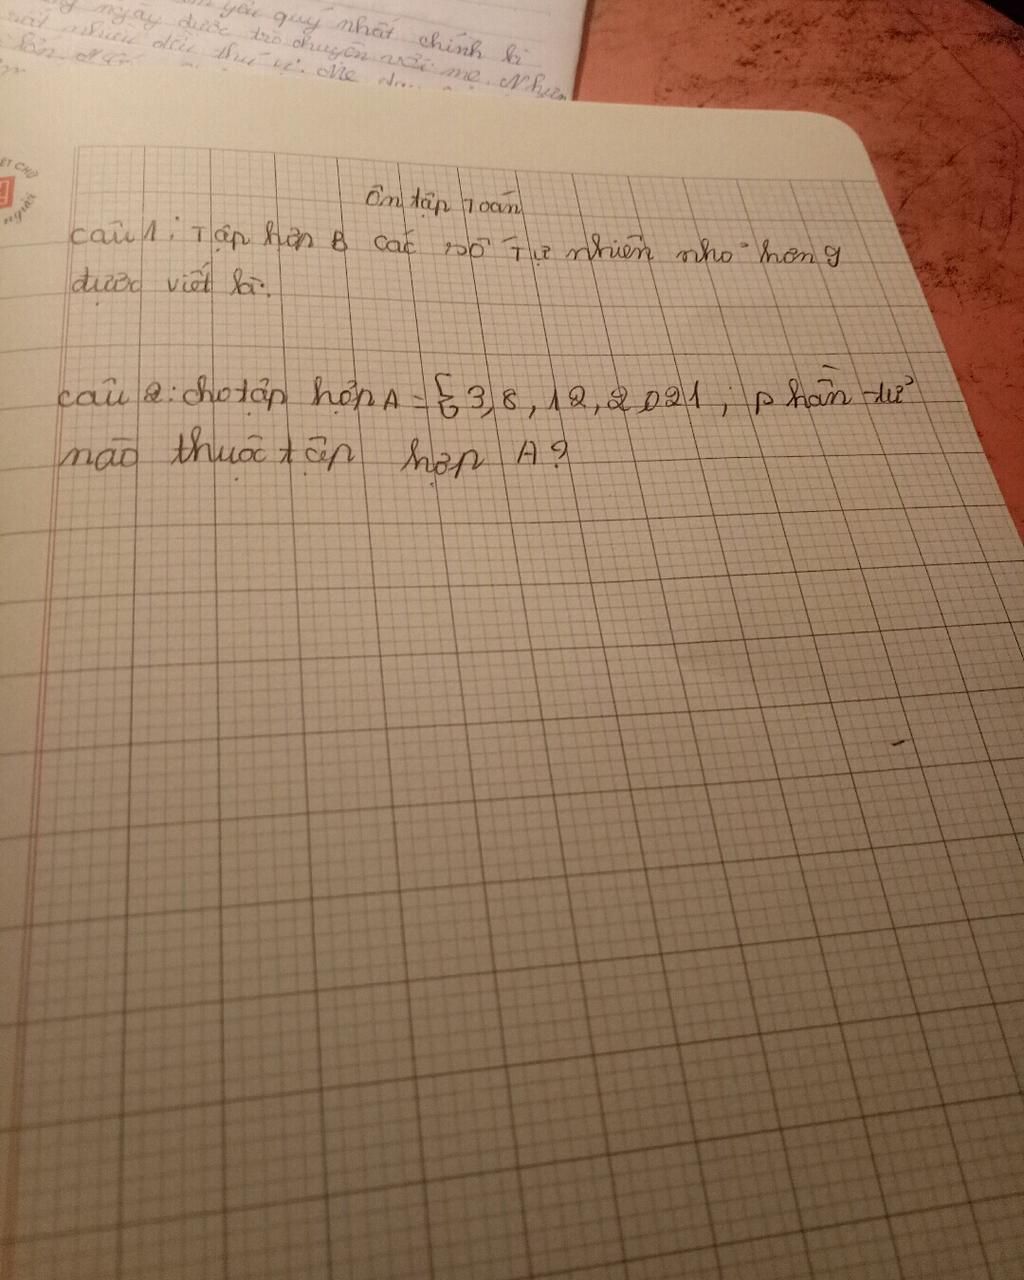 yêu quý nhất chính là
ngày được trò chuyện với mẹ. Nhưng
nhiều điều thú vị. Mẹ
ẾT CHỮ
người
Ôn tập Toán
câu 1: Tập hợp B các số Tự nhiên nhỏ hơn 9
được viết là:
câu 2: cho tập hợp A = { 3, 8, 12, 2021, ; phần tử
nào thuộc tập hợp A?